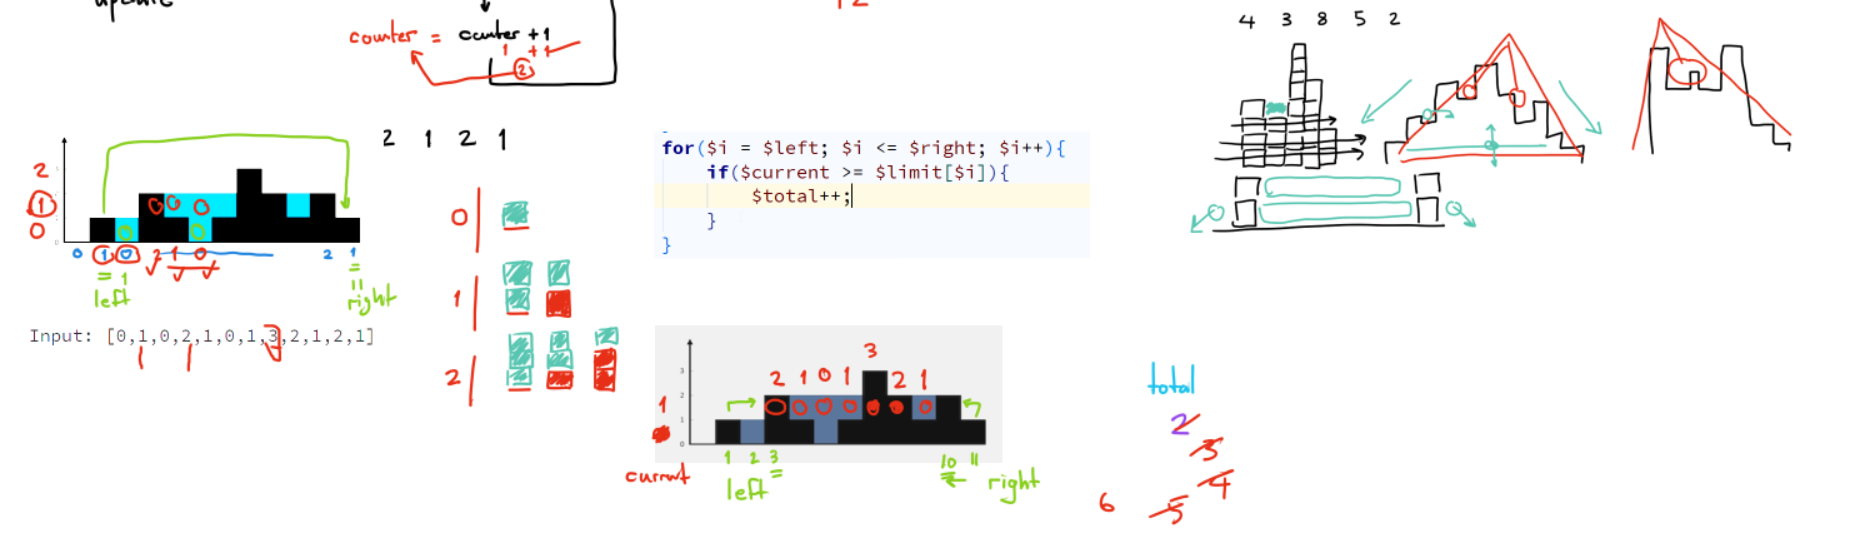 update
counter = counter +1
1 +1
2
12
4 3 8 5 2
2 1 2 1
2
1
0
0 1 0 2 1 0 2 1
= 1
left
=
right
Input: [0,1,0,2,1,0,1,3,2,1,2,1]
0
1
2
for($i = $left; $i <= $right; $i++){
if($current >= $limit[$i]){
$total++;
}
}
3
2 1 0 1 2 1
3
2
1
0
1
1 2 3 10 11
current
left
right
total
2
3
4
5
6